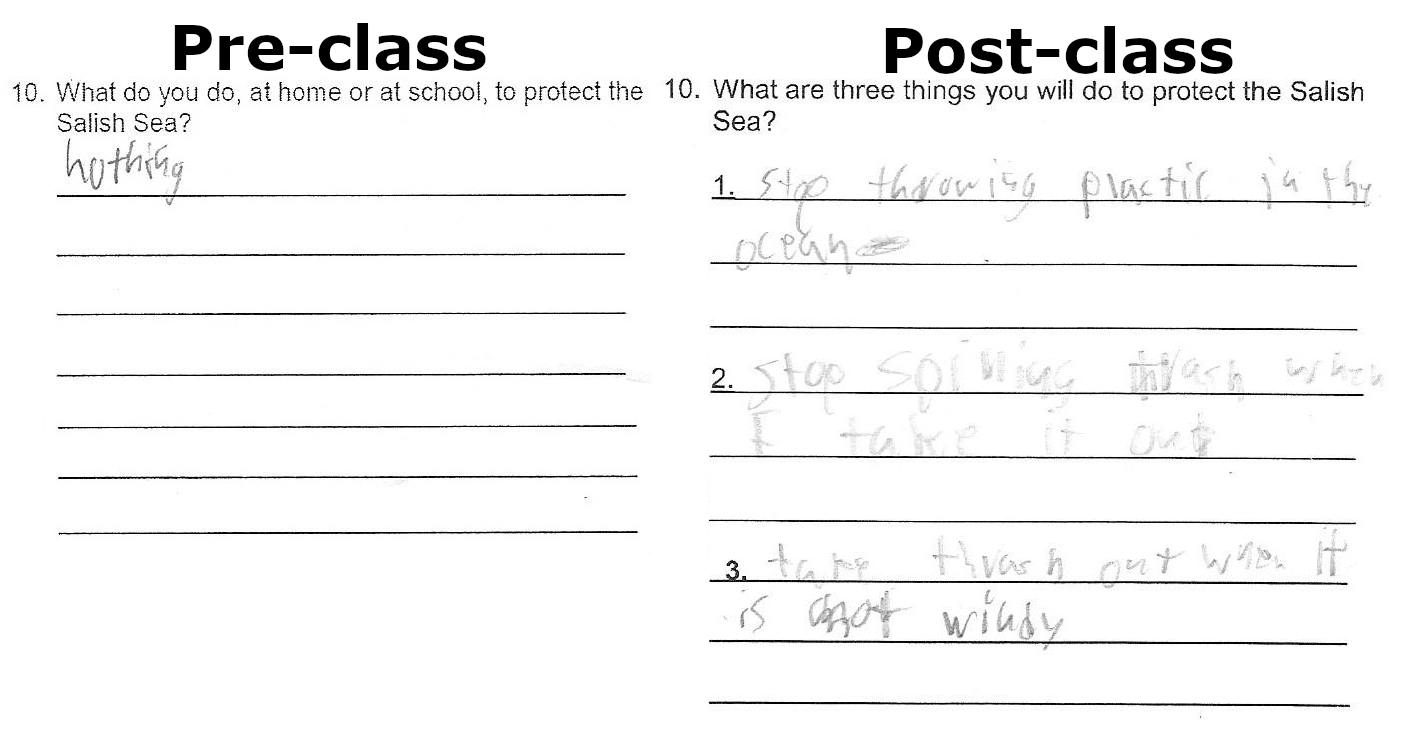 Pre-class
10. What do you do, at home or at school, to protect the
Salish Sea?
nothing
Post-class
10. What are three things you will do to protect the Salish
Sea?
1. Stop throwing plactic in the
ocean
2. Stop spilling thrash when
I take it out
3. take thrash out when it
is not windy